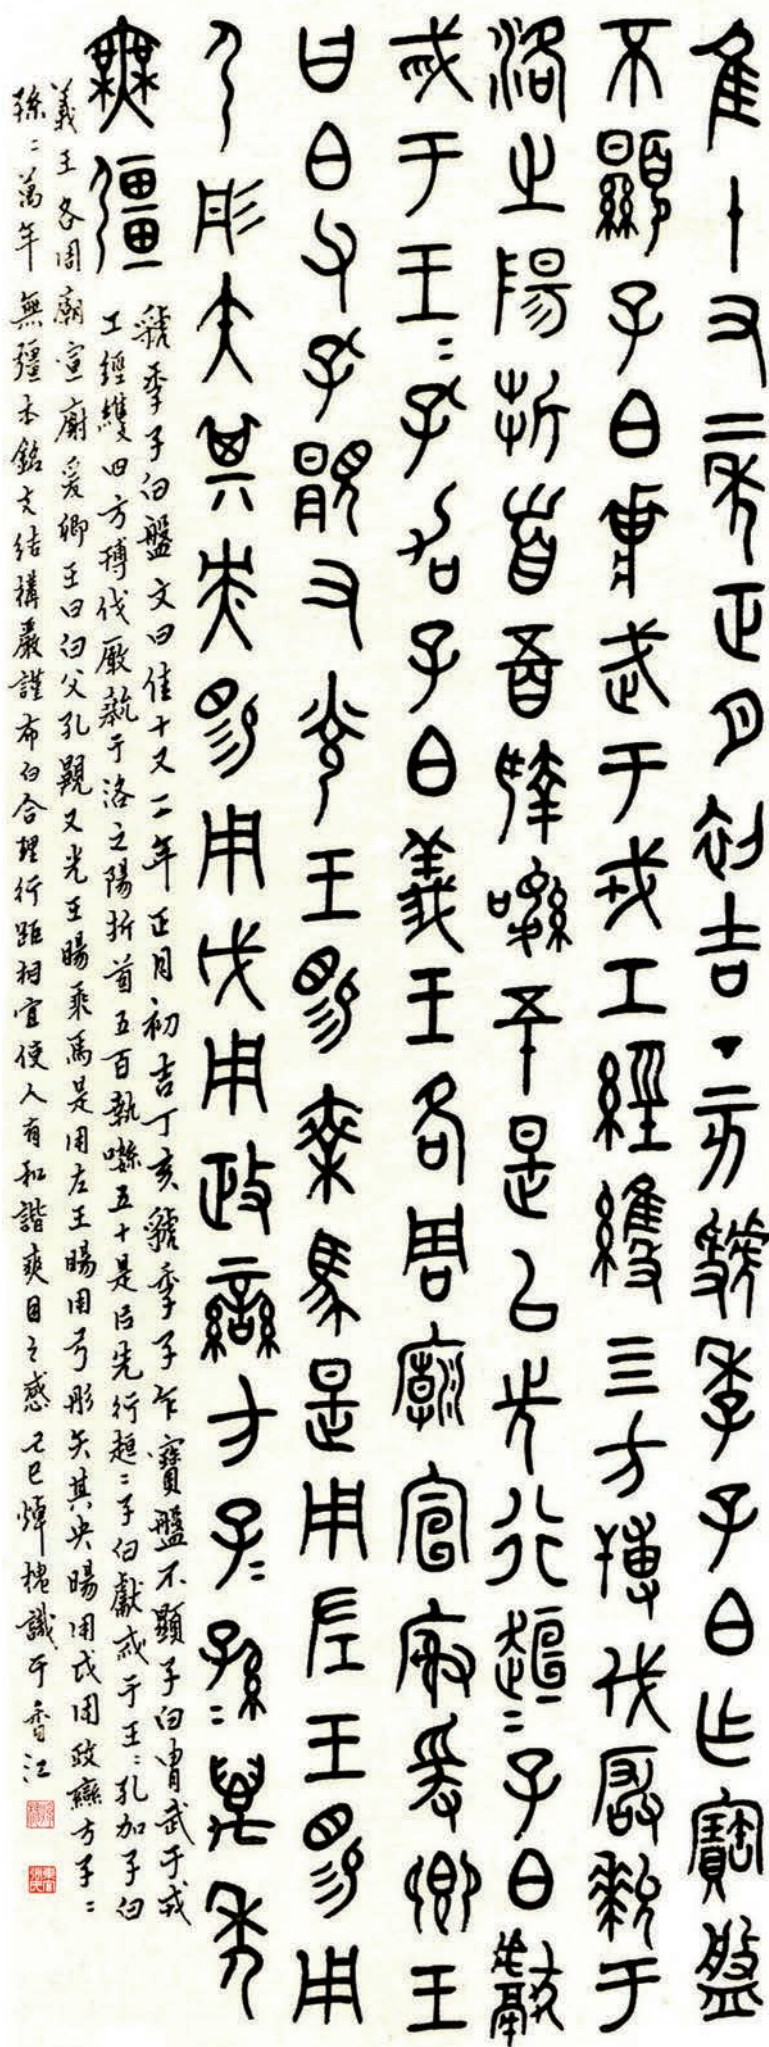 隹十又二年正月初吉丁亥虢季子白乍寶盤
不顯子白𩁹武于戎工經維四方搏伐厰𤞤于
洛之陽折首五百執噝五十是以先行趄〓子白獻
戒于王〓孔加子白義王各周廟宣廚爰卿王
曰白父孔顯又光王賜乘馬是用左王賜用
弓彤矢其央賜用戉用政䜌方子〓孫〓萬年
無疆
虢季子白盤文曰隹十又二年正月初吉丁亥虢季子乍寶盤不顯子白胄武于戎
工經維四方搏伐厰執于洛之陽折首五百執噝五十是以先行趄〓子白獻戒于王〓孔加子白
義王各周廟宣廚爰卿王曰白父孔覭又光王暘乘馬是用左王暘用弓彤矢其央暘用戉用政䜌方子〓
孫〓萬年無疆本銘文結構嚴謹布白合理行距相宜使人有和諧爽目之感己巳煒槐識于香江